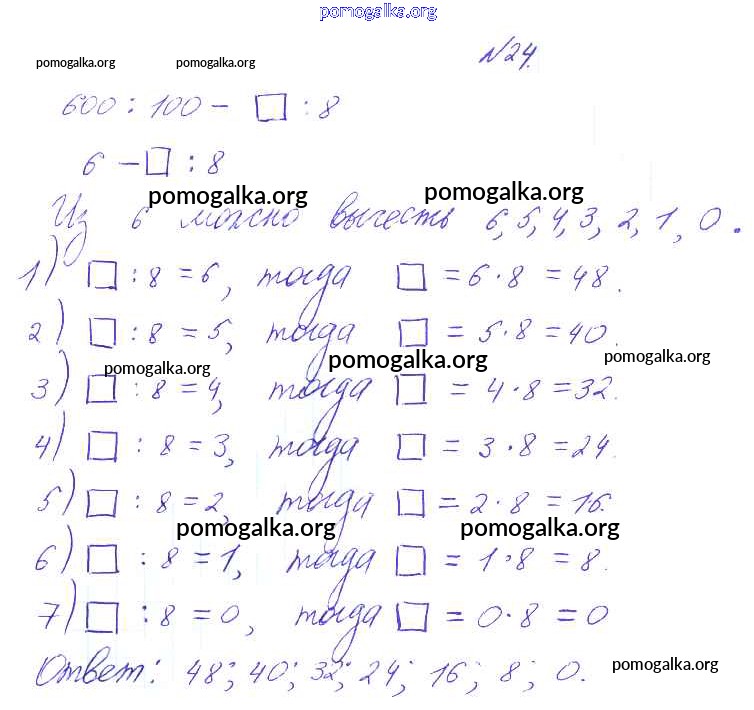 pomogalka.org
№24.
pomogalka.org pomogalka.org
600 : 100 - □ : 8
6 - □ : 8
pomogalka.org pomogalka.org
Из 6 можно вычесть 6, 5, 4, 3, 2, 1, 0.
1) □ : 8 = 6, тогда □ = 6 · 8 = 48.
2) □ : 8 = 5, тогда □ = 5 · 8 = 40.
pomogalka.org pomogalka.org pomogalka.org
3) □ : 8 = 4, тогда □ = 4 · 8 = 32.
4) □ : 8 = 3, тогда □ = 3 · 8 = 24.
5) □ : 8 = 2, тогда □ = 2 · 8 = 16.
pomogalka.org pomogalka.org
6) □ : 8 = 1, тогда □ = 1 · 8 = 8.
7) □ : 8 = 0, тогда □ = 0 · 8 = 0
Ответ: 48; 40; 32; 24; 16; 8; 0.
pomogalka.org